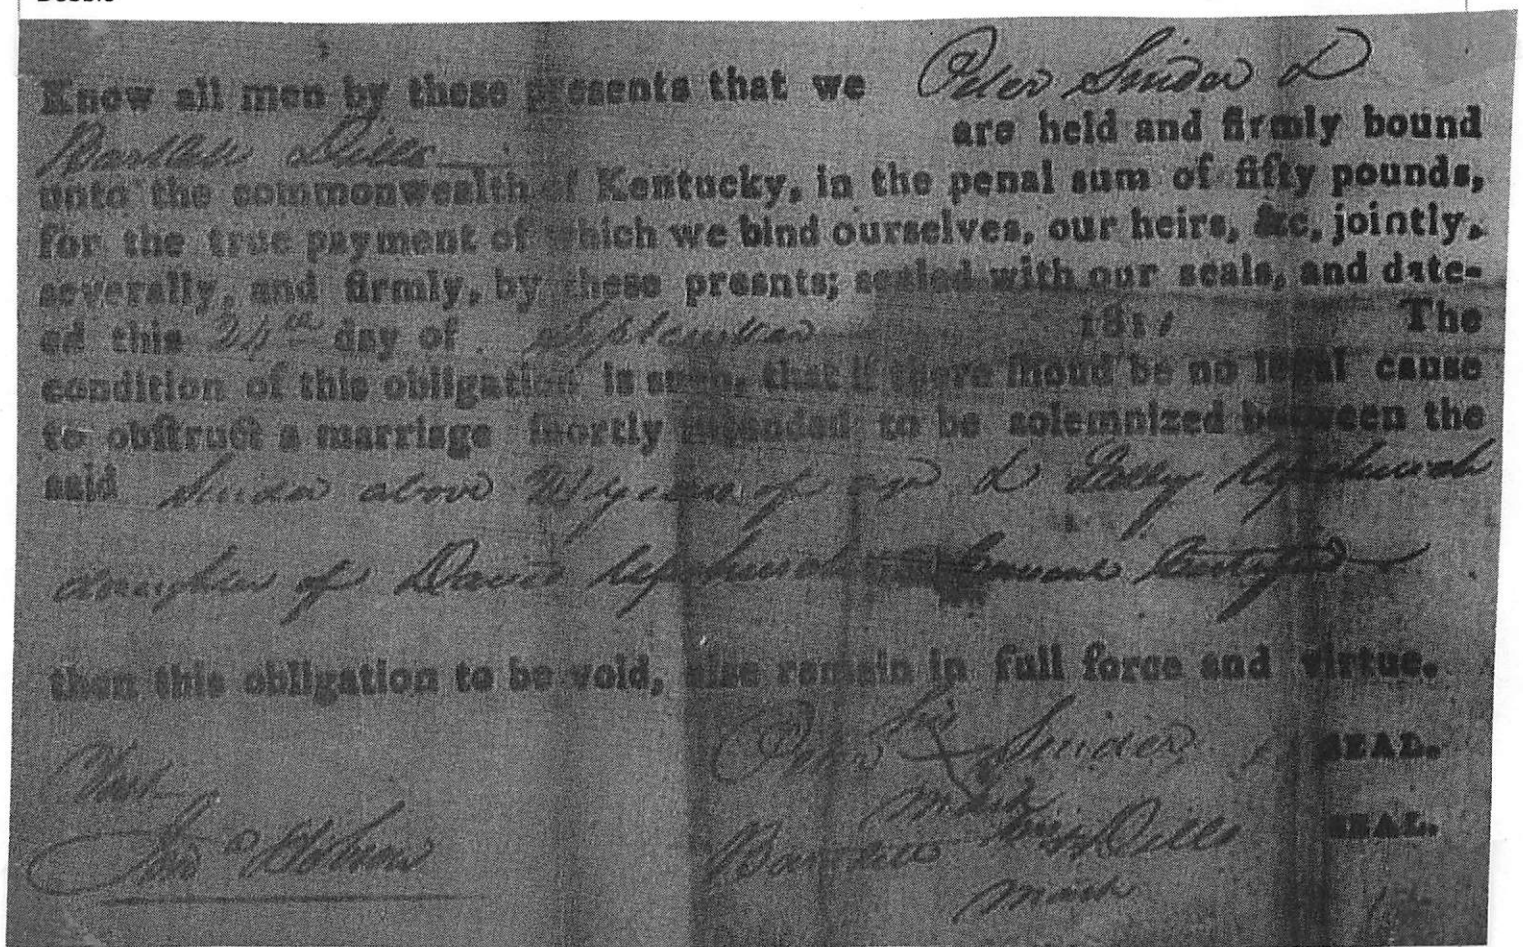 Know all men by these presents that we Peter Snider &
Bartlett Dills are held and firmly bound
unto the commonwealth of Kentucky, in the penal sum of fifty pounds,
for the true payment of which we bind ourselves, our heirs, &c, jointly,
severally, and firmly, by these presnts; sealed with our seals, and date-
ed this 24th day of September 1811 The
condition of this obligation is such, that if there ſhoud be no legal cause
to obſtruct a marriage ſhortly intended to be solemnized between the
said Snider above 21 years of age & Polly
daughter of David Consent Certified
then this obligation to be void, else remain in full force and virtue.
his
Peter X Snider SEAL.
mark
Test
his
Bartlett X Dills SEAL.
mark